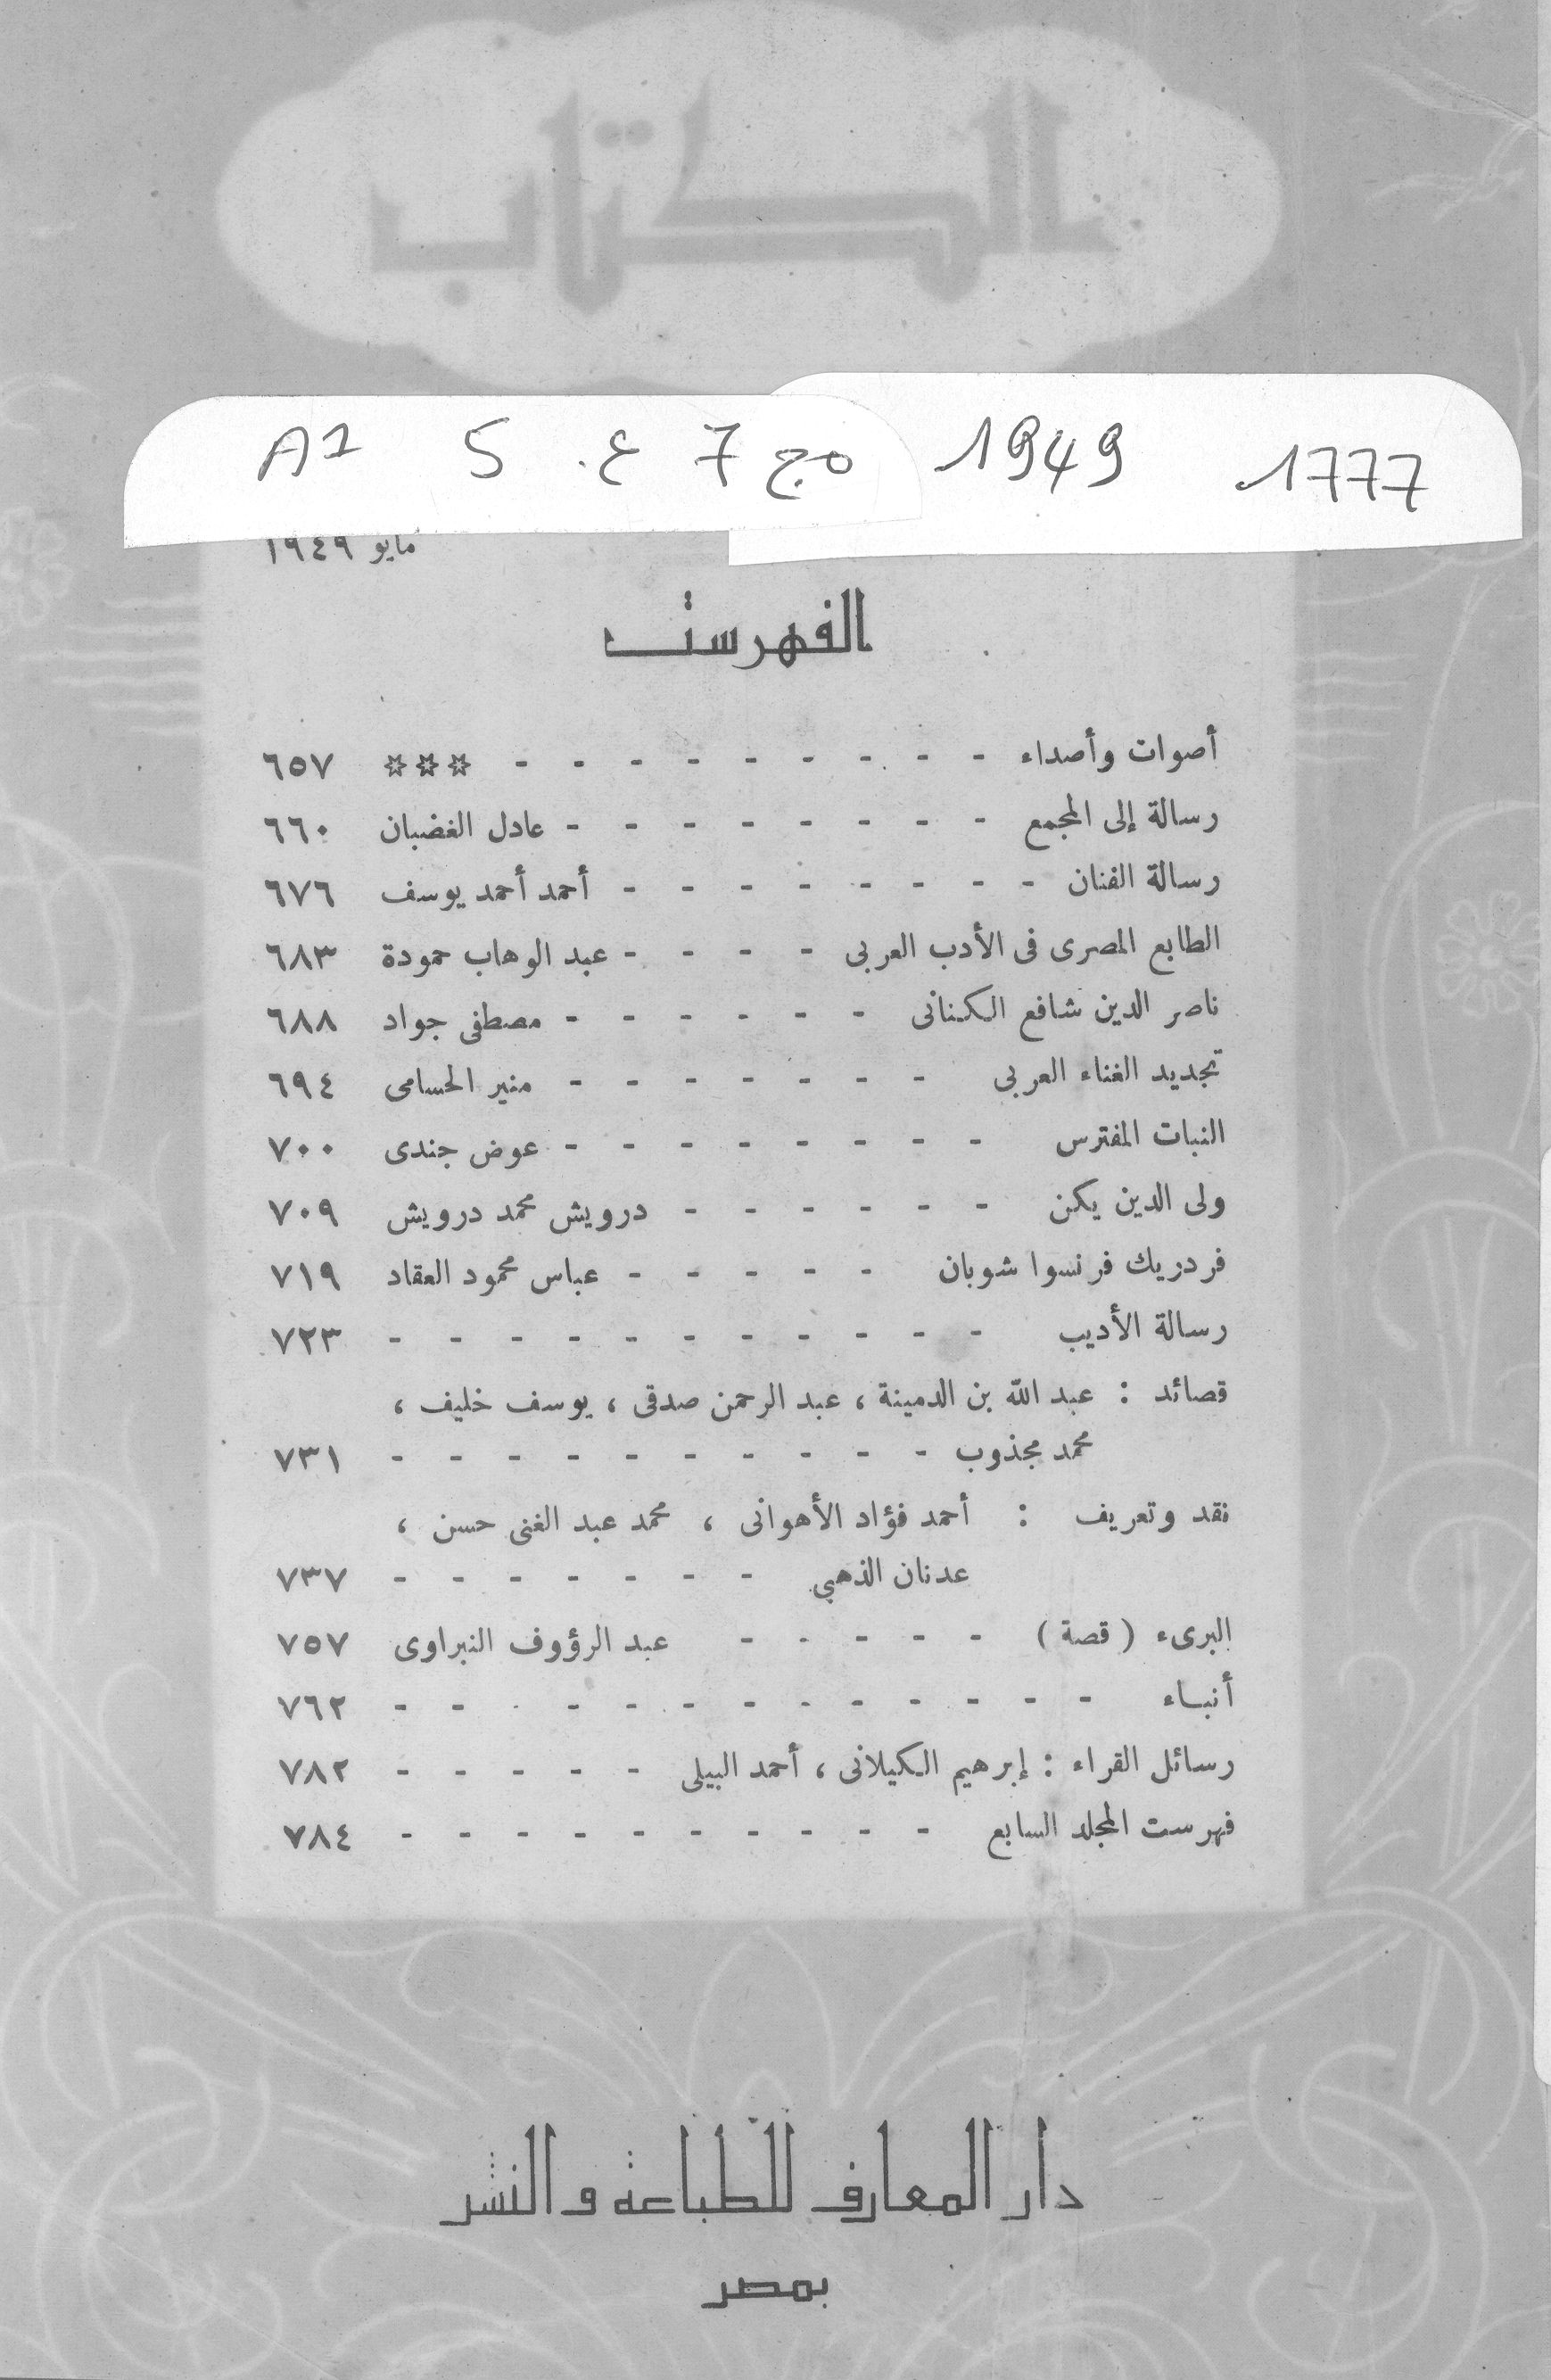 الكتاب
A1 5 ع. 7 مج 1949 1777
مايو ١٩٤٩
الفهرست
أصوات وأصداء - - - - - - - - - *** ٦٥٧
رسالة إلى المجمع - - - - - - - - عادل الغضبان ٦٦٠
رسالة الفنان - - - - - - - - أحمد أحمد يوسف ٦٧٦
الطابع المصرى فى الأدب العربى - - - - عبد الوهاب حمودة ٦٨٣
ناصر الدين شافع الكنانى - - - - - - مصطفى جواد ٦٨٨
تجديد الغناء العربى - - - - - - - منير الحسامى ٦٩٤
النبات المفترس - - - - - - - - عوض جندى ٧٠٠
ولى الدين يكن - - - - - - درويش محمد درويش ٧٠٩
فردريك فرنسوا شوبان - - - - - عباس محمود العقاد ٧١٩
رسالة الأديب - - - - - - - - - - - ٧٢٣
قصائد : عبد الله بن الدمينة ، عبد الرحمن صدقى ، يوسف خليف ،
محمد مجذوب - - - - - - - - - - ٧٣١
نقد وتعريف : أحمد فؤاد الأهوانى ، محمد عبد الغنى حسن ،
عدنان الذهبى - - - - - - - ٧٣٧
البرىء ( قصة ) - - - - - عبد الرؤوف النبراوى ٧٥٧
أنباء - - - - - - - - - - - - ٧٦٢
رسائل القراء : إبرهيم الكيلانى ، أحمد البيلى - - - - - ٧٨٢
فهرست المجلد السابع - - - - - - - - - - ٧٨٤
دار المعارف للطباعة والنشر
بمصر